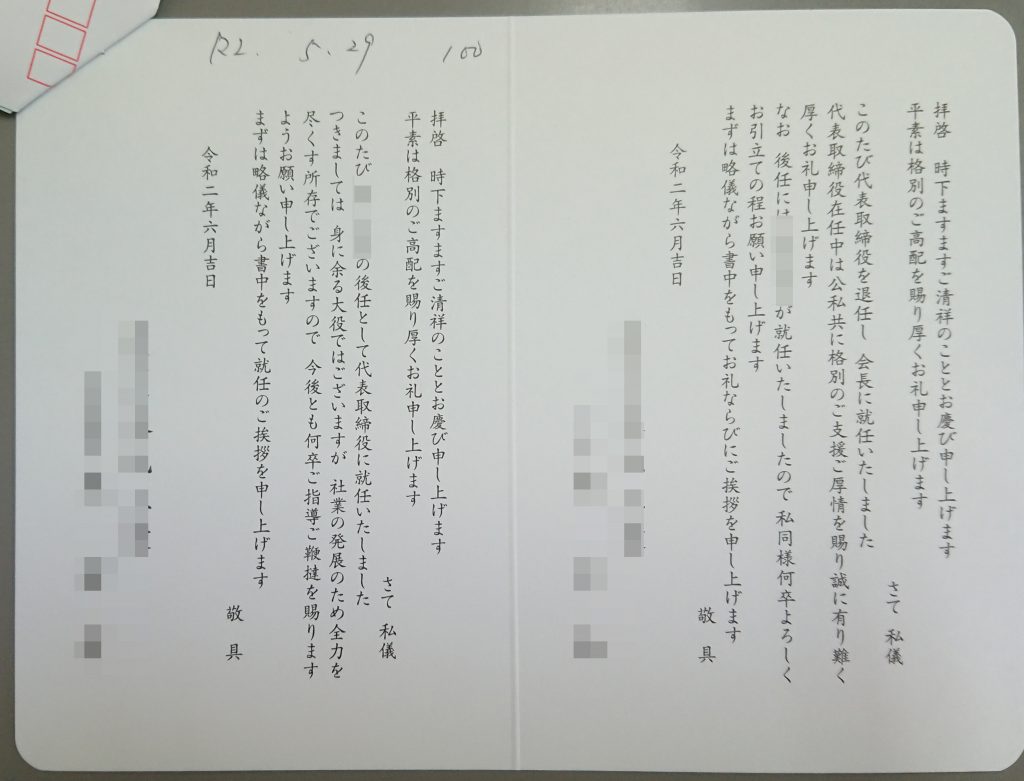 拝啓 時下ますますご清祥のこととお慶び申し上げます
平素は格別のご高配を賜り厚くお礼申し上げます
さて 私儀
このたび代表取締役を退任し 会長に就任いたしました
代表取締役在任中は公私共に格別のご支援ご厚情を賜り誠に有り難く
厚くお礼申し上げます
なお 後任には が就任いたしましたので 私同様何卒よろしく
お引立ての程お願い申し上げます
まずは略儀ながら書中をもってお礼ならびにご挨拶を申し上げます
敬具
令和二年六月吉日
R2. 5. 29 100
拝啓 時下ますますご清祥のこととお慶び申し上げます
平素は格別のご高配を賜り厚くお礼申し上げます
さて 私儀
このたび の後任として代表取締役に就任いたしました
つきましては 身に余る大役ではございますが 社業の発展のため全力を
尽くす所存でございますので 今後とも何卒ご指導ご鞭撻を賜ります
ようお願い申し上げます
まずは略儀ながら書中をもって就任のご挨拶を申し上げます
敬具
令和二年六月吉日